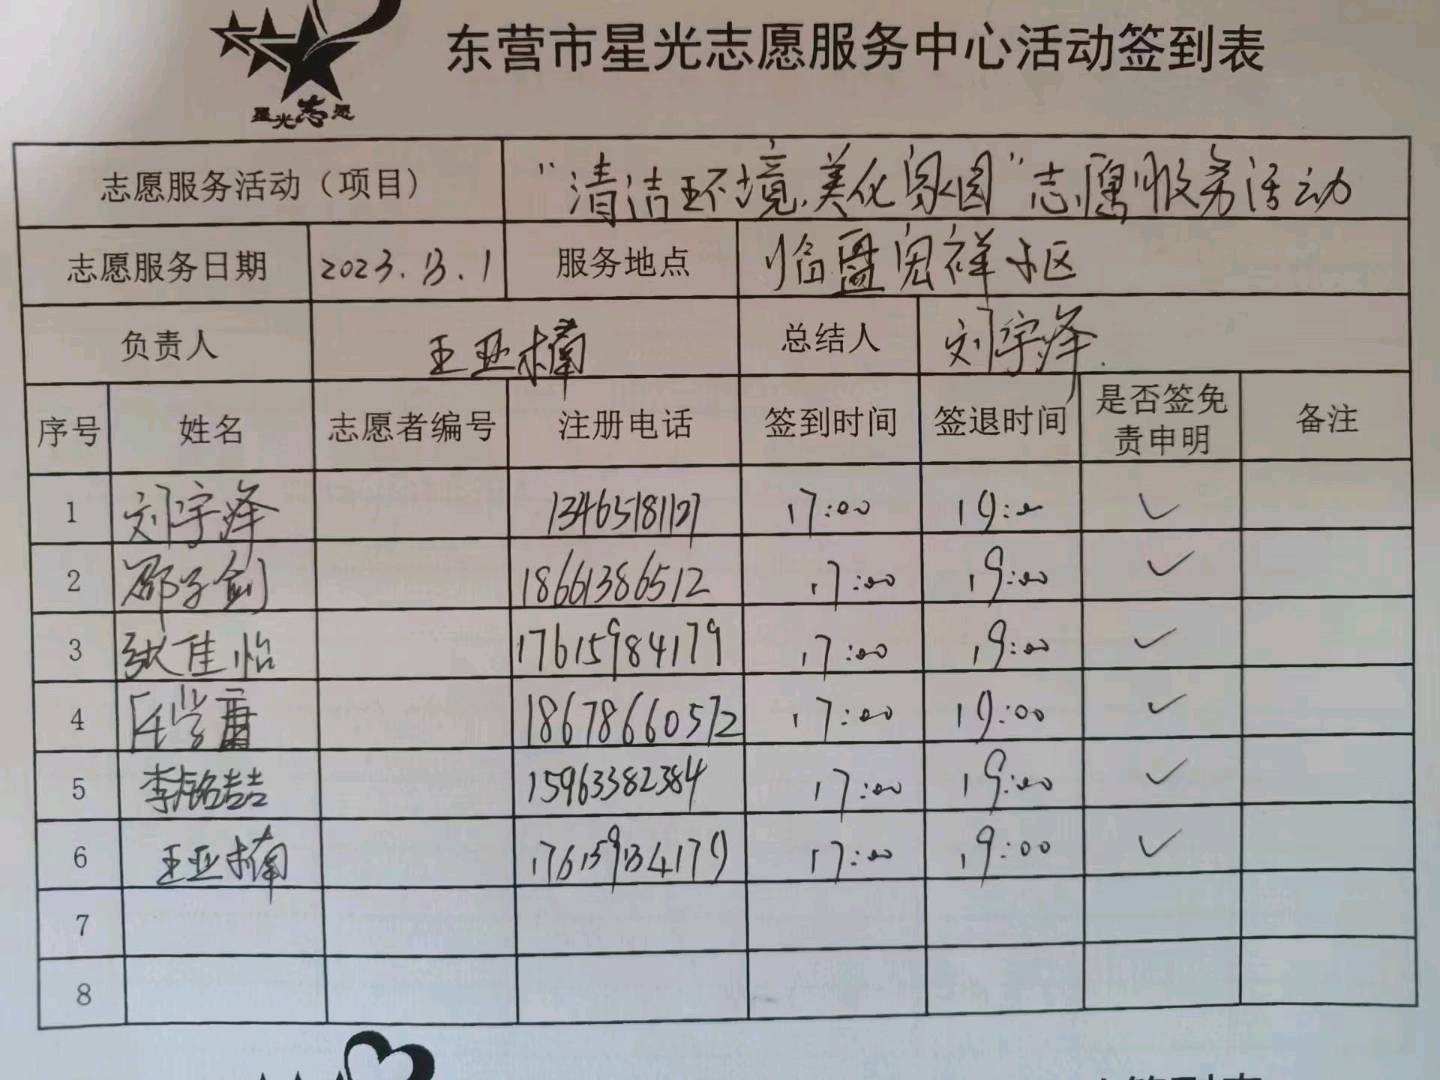 星光志愿
东营市星光志愿服务中心活动签到表
志愿服务活动（项目） “清洁环境，美化家园”志愿服务活动
志愿服务日期 2023.13.1 服务地点 临盘宏祥小区
负责人 王亚楠 总结人 刘宇泽
序号 姓名 志愿者编号 注册电话 签到时间 签退时间 是否签免责申明 备注
1 刘宇泽 13465181127 17:00 19:00 ✓
2 邵子剑 18661386512 17:00 19:00 ✓
3 张佳怡 17615984179 17:00 19:00 ✓
4 18678660572 17:00 19:00 ✓
5 李铭喆 15963382384 17:00 19:00 ✓
6 王亚楠 17615934179 17:00 19:00 ✓
7
8